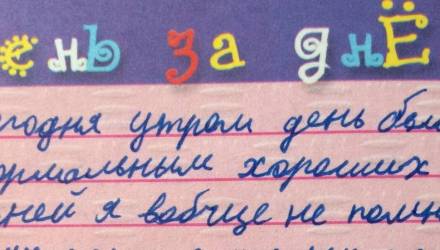 ень за днЁ
годня утром день был
ормальным хороших
ней я вобще не помн